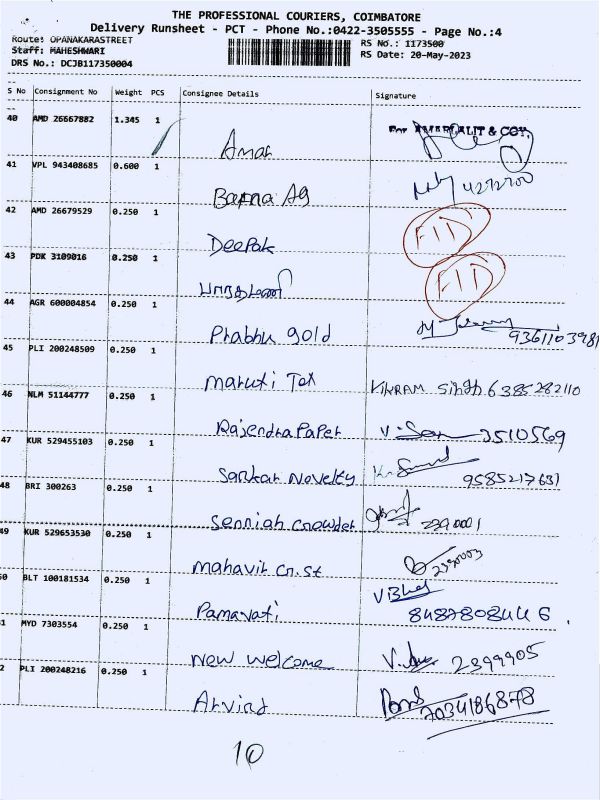 THE PROFESSIONAL COURIERS, COIMBATORE
Delivery Runsheet - PCT - Phone No.:0422-3505555 - Page No.:4
Route: OPANAKARASTREET RS No.: 1173500
Staff: MAHESHWARI RS Date: 20-May-2023
DRS No.: DCJB117350004
S No Consignment No Weight PCS Consignee Details Signature
40 AMD 26667882 1.345 1 Amar For AMARLALIT & COY,
41 VPL 943408685 0.600 1 Bapna Ag 4272700
42 AMD 26679529 0.250 1 Deepak
43 PDK 3109016 0.250 1
44 AGR 600004854 0.250 1 Prabhu gold 9361103981
45 PLI 200248509 0.250 1 maruti Tex VIKRAM Singh 6385282110
46 NLM 51144777 0.250 1 Rajendra Paper 2510569
47 KUR 529455103 0.250 1 Sankar Novelty 9585217631
48 BRI 300263 0.250 1 Senniah Crowder 2390001
49 KUR 529653530 0.250 1 mahavir Cn.St 2390003
50 BLT 100181534 0.250 1 Pamavati 8487808446.
51 MYD 7303554 0.250 1 New welcome 2399905
52 PLI 200248216 0.250 1 Arvind 7034186878
10